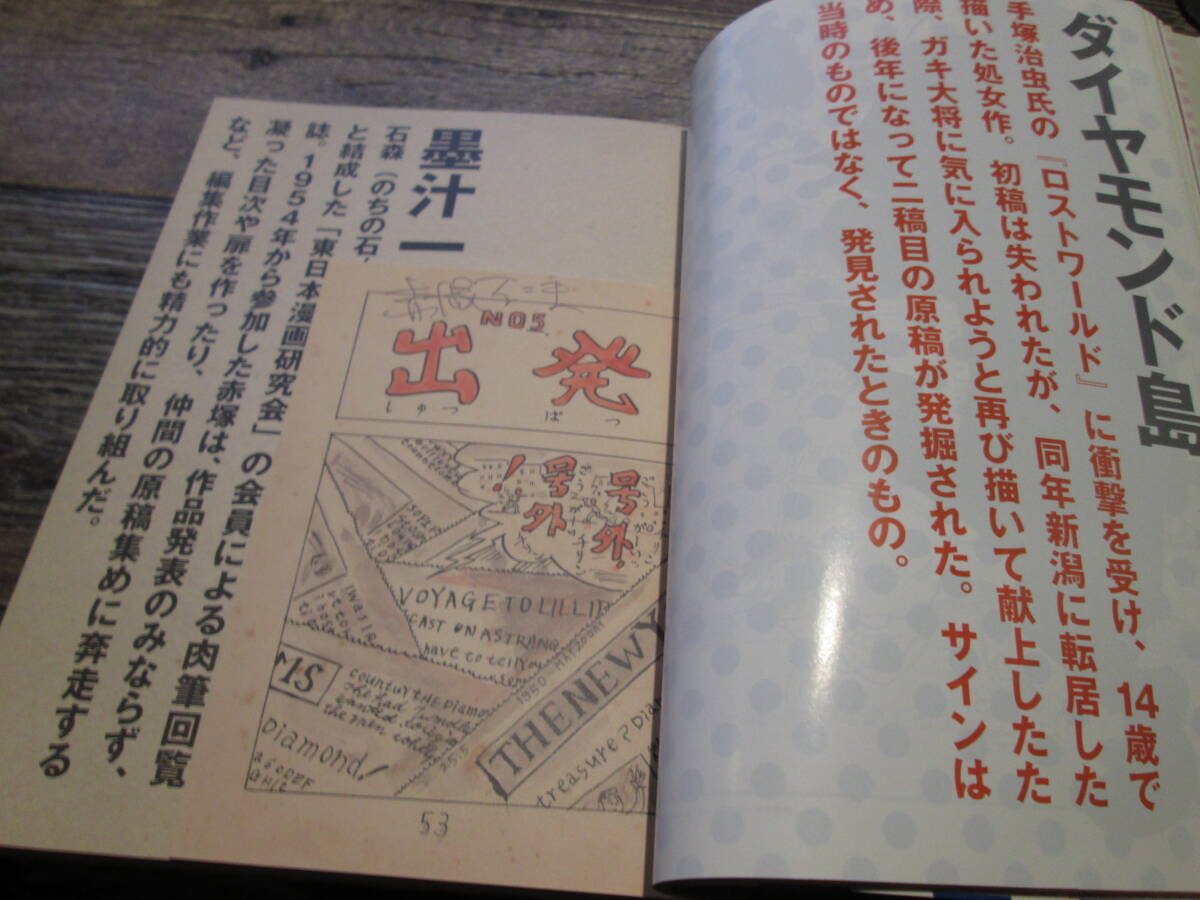 ダイヤモンド島
手塚治虫氏の『ロストワールド』に衝撃を受け、14歳で
描いた処女作。初稿は失われたが、同年新潟に転居した
際、ガキ大将に気に入られようと再び描いて献上したた
め、後年になって二稿目の原稿が発掘された。サインは
当時のものではなく、発見されたときのもの。
墨汁一
石森(のちの石
と結成した「東日本漫画研究会」の会員による肉筆回覧
誌。1954年から参加した赤塚は、作品発表のみならず、
凝った目次や扉を作ったり、仲間の原稿集めに奔走する
など、編集作業にも精力的に取り組んだ。
NO5
出発
しゅつ ぱつ
号外
号外!
VOYAGE TO LILLIP
CAST ON A STRANG
have to tell you
I WAS IR
MS
COUNTUY THE DIAMO
Diamond!
THE NEW Y
1950 MAY 20 DAY
treasure? Dia
53